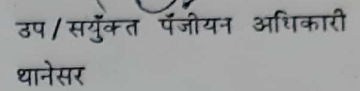 उप / सयुँक्त पँजीयन अधिकारी
थानेसर